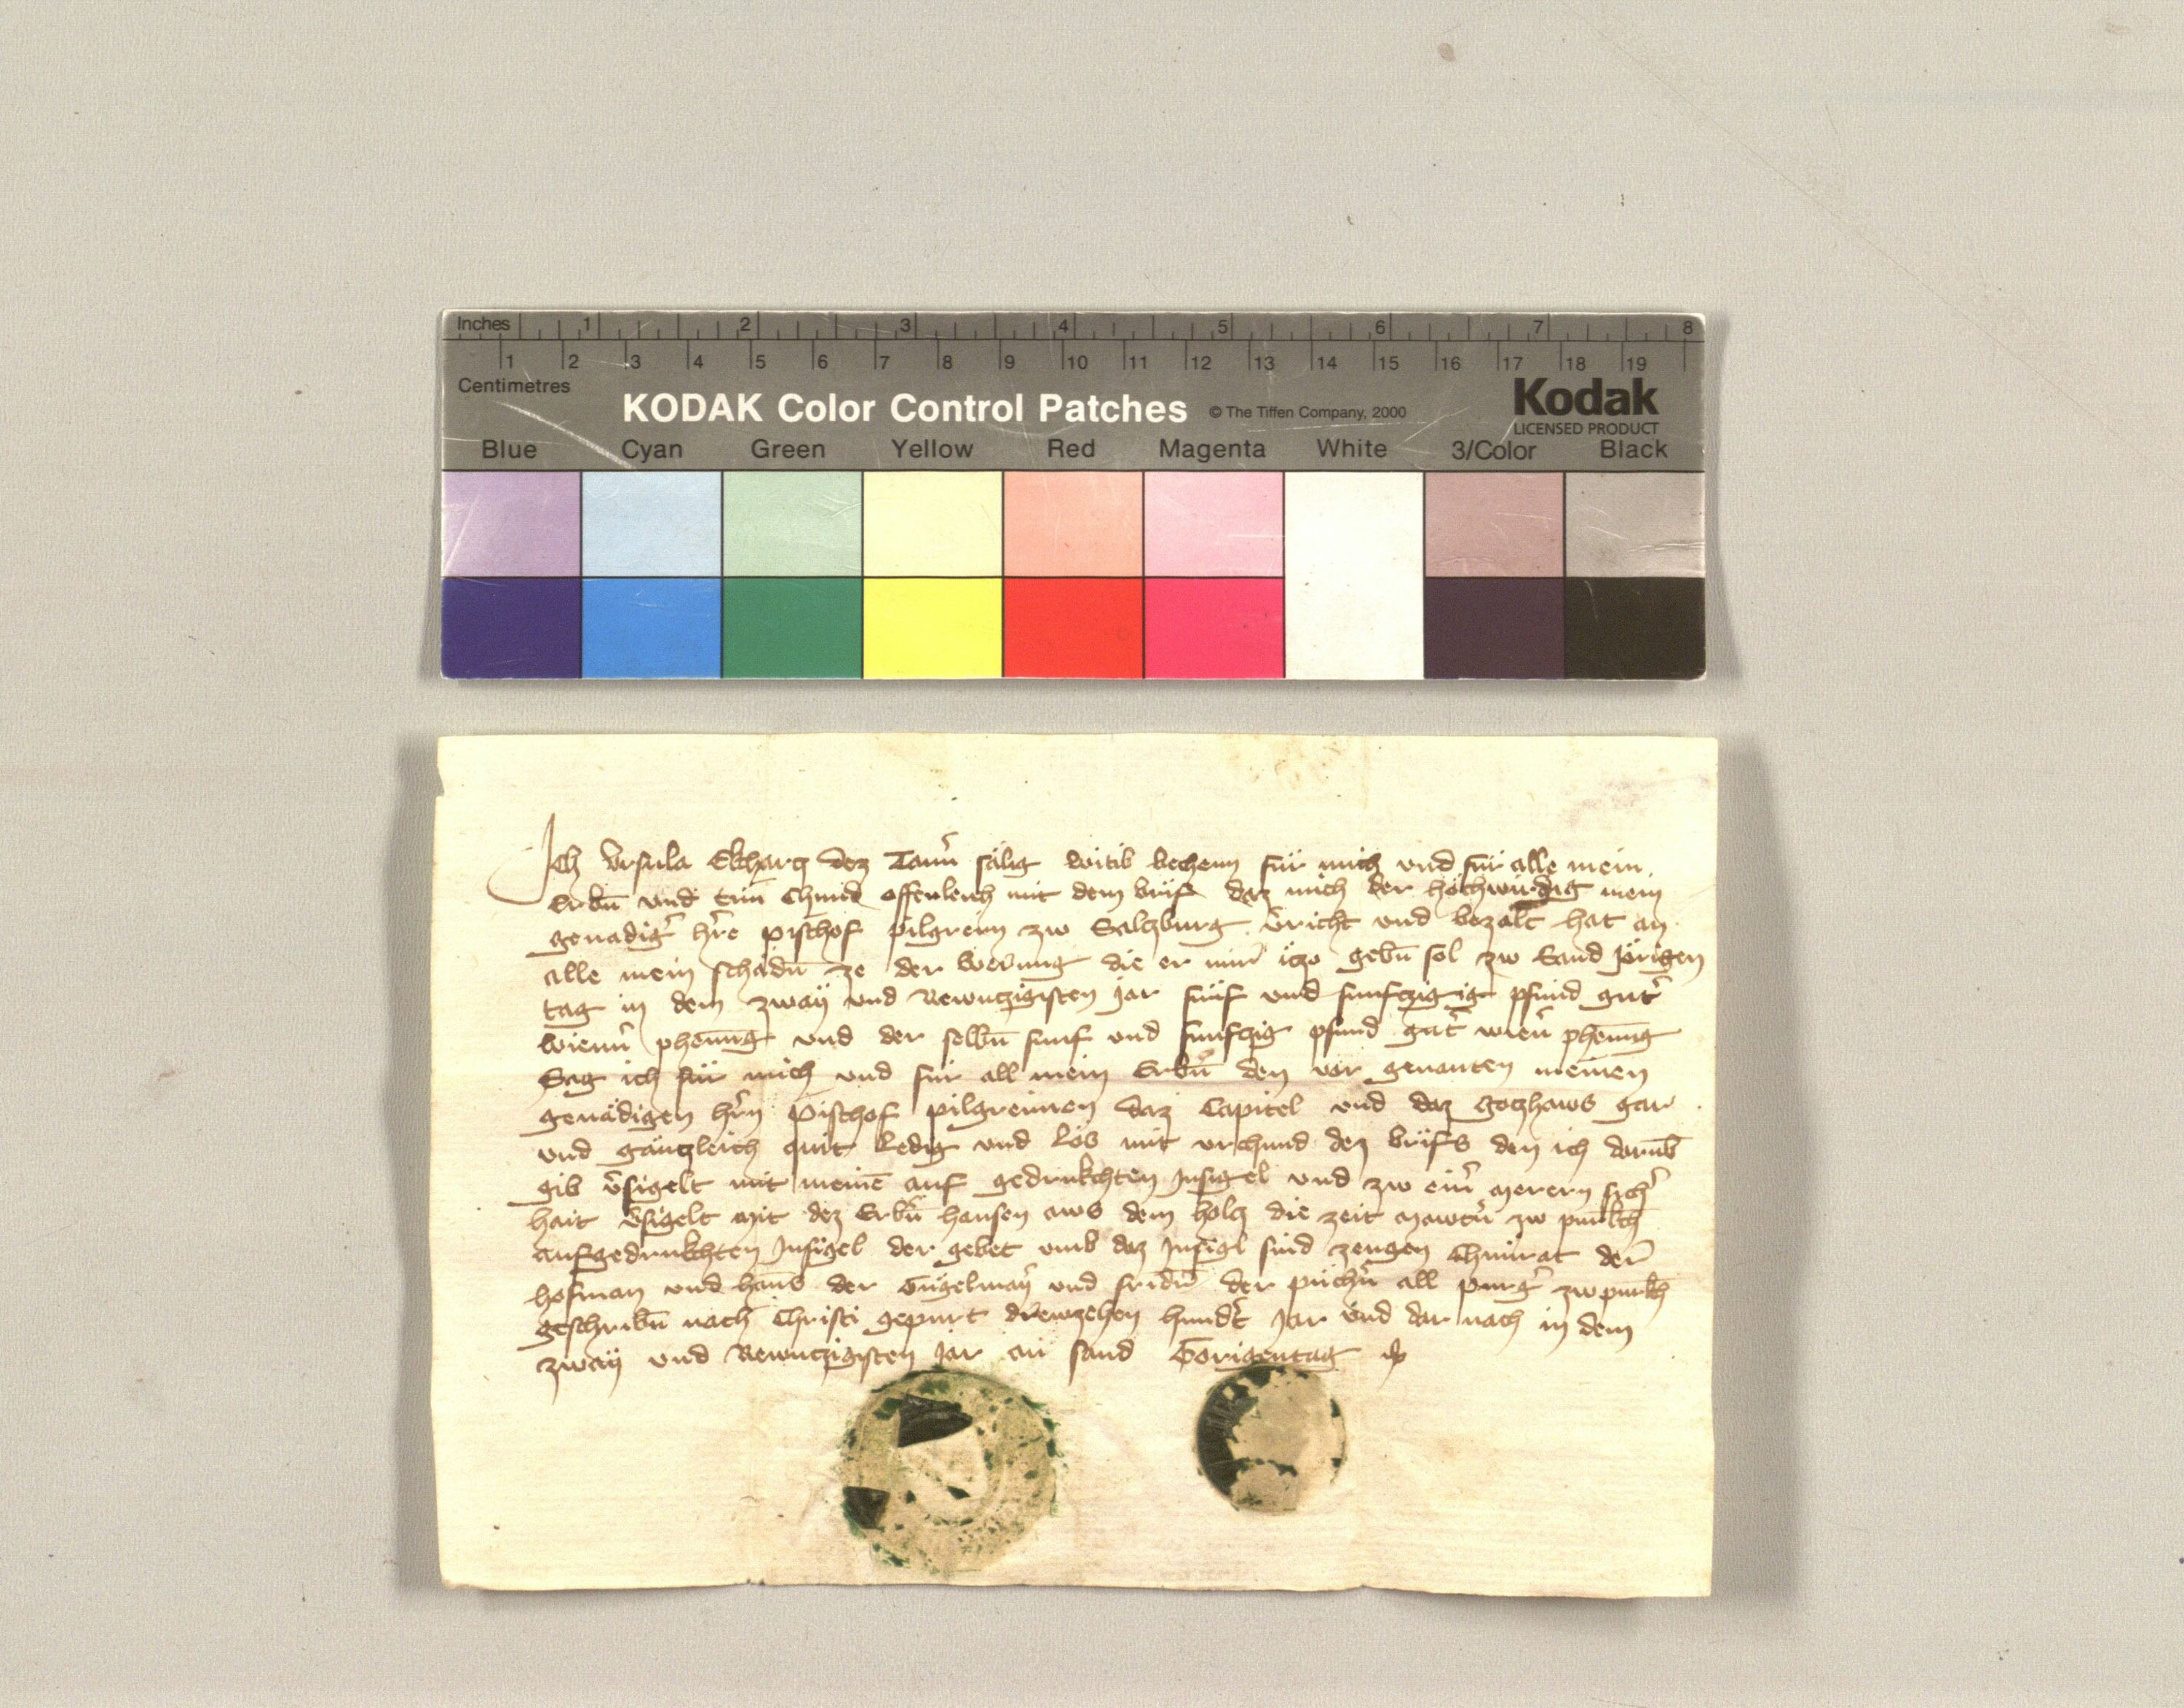 Inches 1 2 3 4 5 6 7 8
1 2 3 4 5 6 7 8 9 10 11 12 13 14 15 16 17 18 19
Centimetres
KODAK Color Control Patches © The Tiffen Company, 2000 Kodak
LICENSED PRODUCT
Blue Cyan Green Yellow Red Magenta White 3/Color Black
Ich Vrsula Ekharcz dez Tann̄ sälig witib bechenn für mich vnd für alle mein
Erbn̄ vnd tun̄ Chund offenleich mit dem brif daz mich der hochwirdig mein
genadig' h're pischof pilgreim zw Salczburg v'richt vnd bezalt hat an
alle mein schadn̄ ze der werung die er mir iczo gebn̄ sol zw Sand Jörigen
tag in dem zway vnd Newnczigisten jar fünf vnd funfczigig pfund gut'
wienn' phenng vnd der selbn̄ funf vnd funfczig pfund gut' wien' phenng
Sag ich für mich vnd für all mein Erbn̄ den vor genanten meinen
genädigen h'rn Pischof pilgreimen daz Capitel vnd daz goczhaws gar
vnd gänczleich quit ledig vnd los mit vrchund dez brifs den ich darūb
gib v'sigelt mit meinē auf gedrukchten Insigel vnd zw ein' merern sich'
hait v'sigelt mit dez Erbn̄ hansen aws dem holcz die zeit mawtn' zw
aufgedrukchten Insigel der gebet vmb daz Insigl sind zeugen Chunrat der
hofman vnd hans der vnd fridr' der püchn' all purg' zw
geschribn̄ nach Christi gepurt drewzehen hund't Jar vnd dar nach in dem
zway vnd Newnczigisten jar an sand Gorigentag